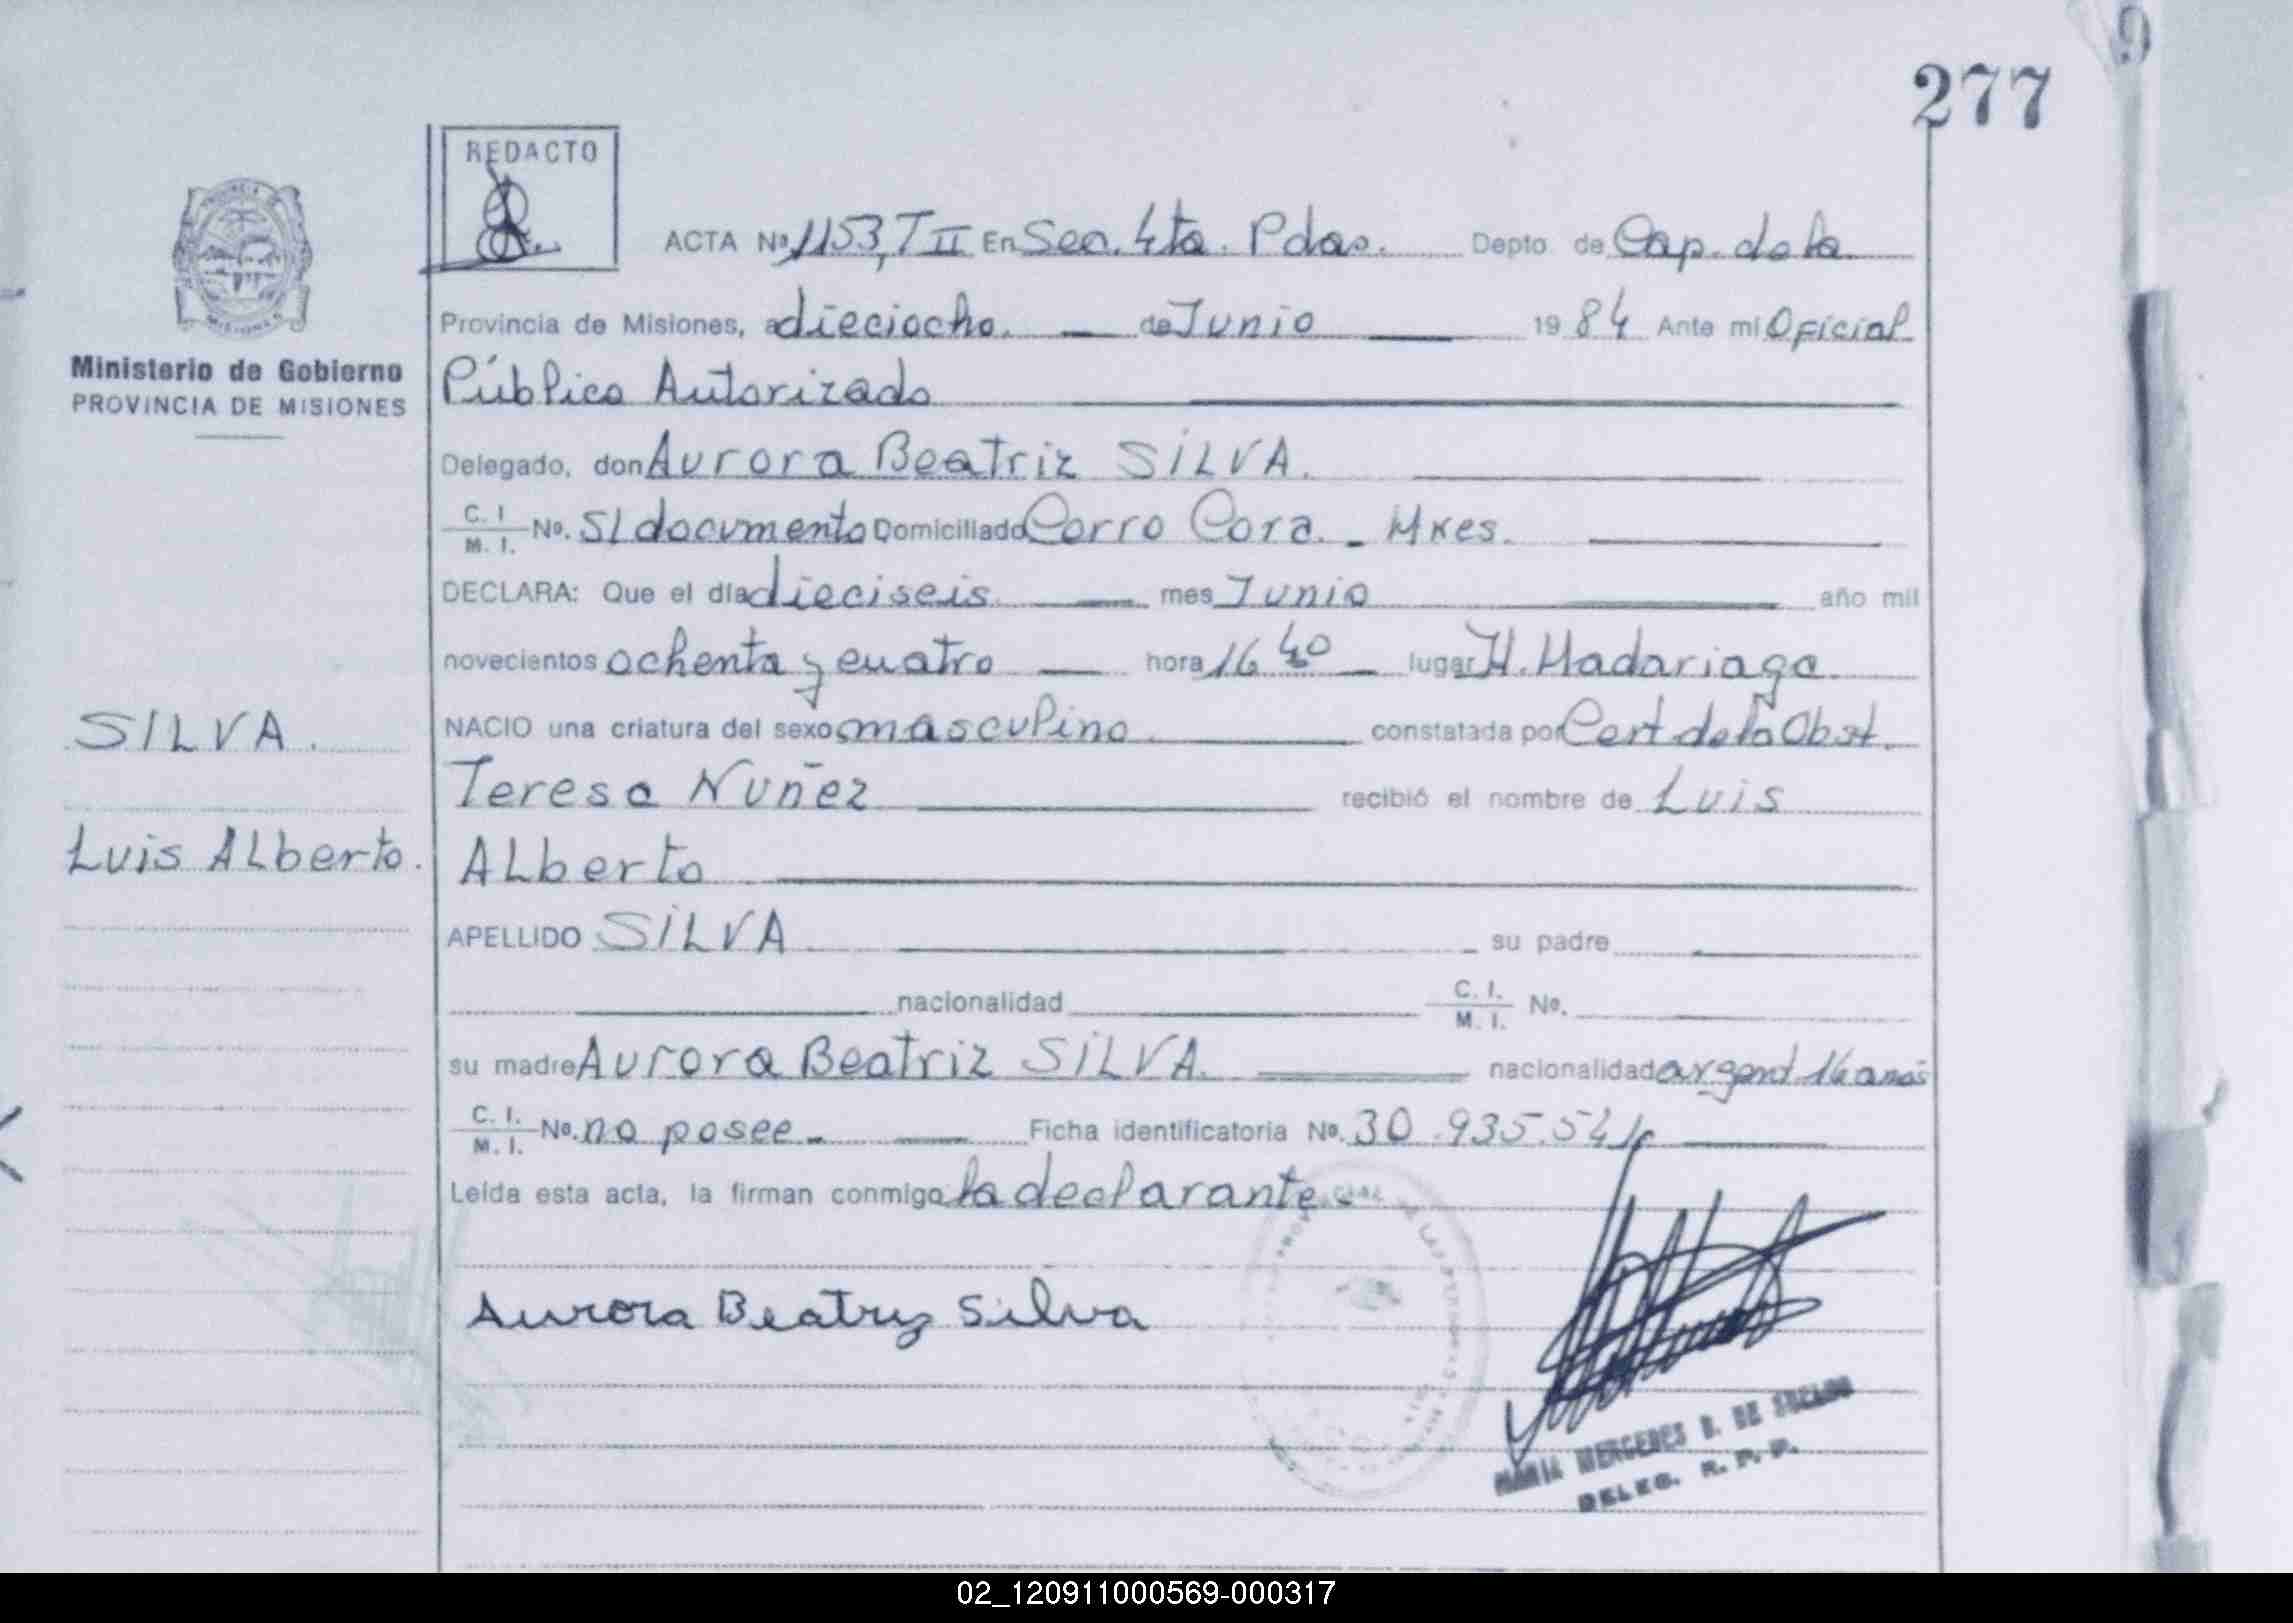 277
REDACTO
ACTA Nº 1153, T II En Sec. 4ta. Pdas. Depto. de Cap. de la
Provincia de Misiones, a dieciocho. de Junio 1984 Ante mí Oficial
Ministerio de Gobierno
PROVINCIA DE MISIONES
Público Autorizado
Delegado, don Aurora Beatriz SILVA.
C. I. M. I. Nº. S/documento Domiciliado Cerro Cora. - Mnes.
DECLARA: Que el día dieciseis mes Junio año mil
novecientos ochenta y cuatro hora 16 40 lugar H. Madariaga.
NACIO una criatura del sexo masculino. constatada por Cert de la Obst.
Teresa Nuñez recibió el nombre de Luis
Alberto
APELLIDO SILVA su padre
nacionalidad C. I. M. I. Nº.
su madre Aurora Beatriz SILVA. nacionalidad argent 16 anos
C. I. M. I. Nº. no posee. Ficha identificatoria Nº. 30.935.541
Leída esta acta, la firman conmigo la declarante.
Aurora Beatriz Silva
MARIA MERCEDES B. DE
DELEG. R. P. P.
SILVA.
Luis Alberto.
02_120911000569-000317